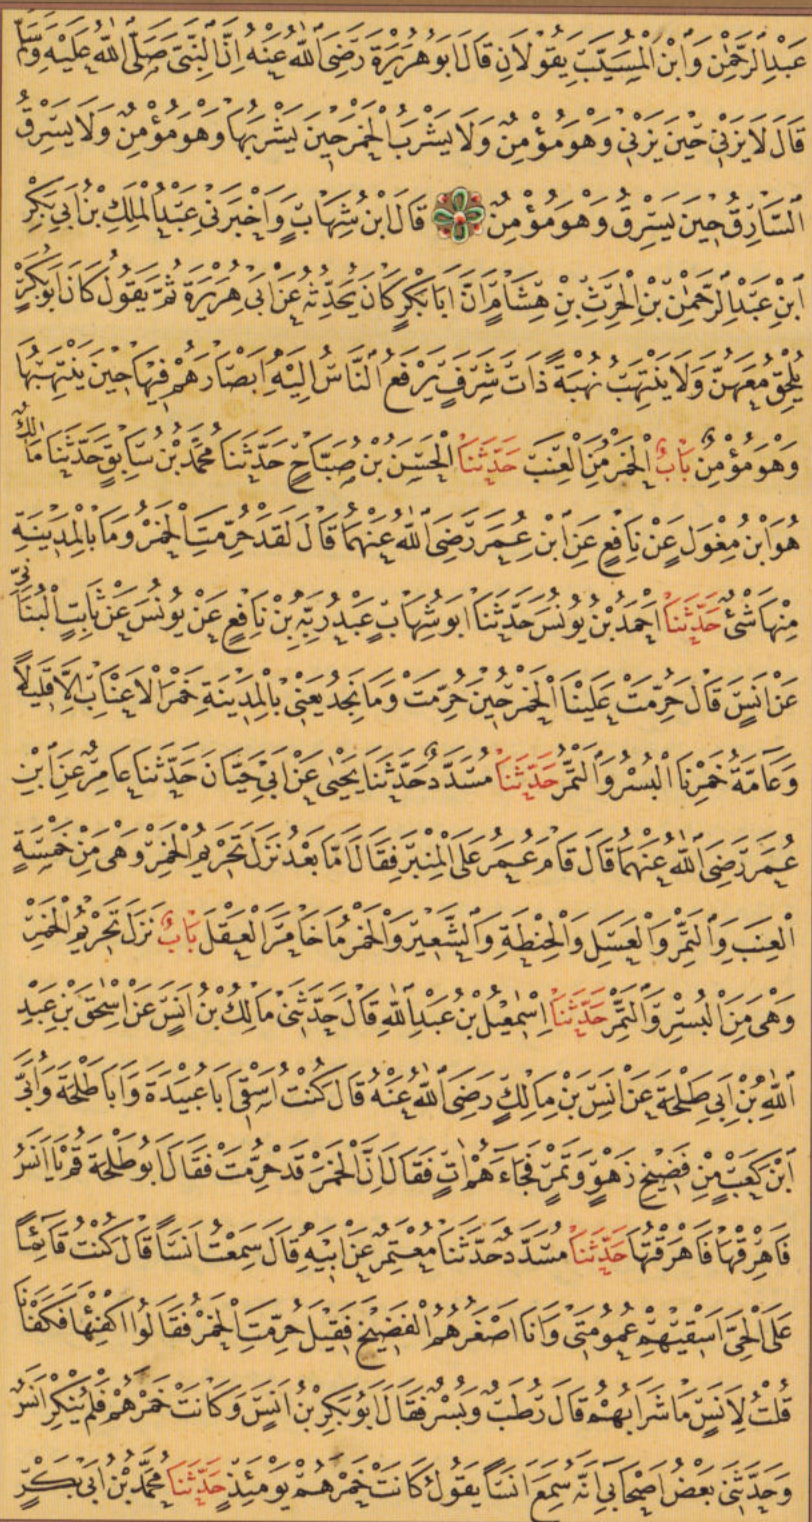 عَبْدِ الرَّحْمٰنِ وَابْنَ الْمُسَيَّبِ يَقُولَانِ قَالَ اَبُو هُرَيْرَةَ رَضِيَ اللّٰهُ عَنْهُ اِنَّ النَّبِيَّ صَلَّى اللّٰهُ عَلَيْهِ وَسَلَّمَ
قَالَ لَا يَزْنِي حِينَ يَزْنِي وَهُوَ مُؤْمِنٌ وَلَا يَشْرَبُ الْخَمْرَ حِينَ يَشْرَبُهَا وَهُوَ مُؤْمِنٌ وَلَا يَسْرِقُ
السَّارِقُ حِينَ يَسْرِقُ وَهُوَ مُؤْمِنٌ قَالَ ابْنُ شِهَابٍ وَاَخْبَرَنِي عَبْدُ الْمَلِكِ بْنُ اَبِي بَكْرِ
ابْنِ عَبْدِ الرَّحْمٰنِ بْنِ الْحٰرِثِ بْنِ هِشَامٍ اَنَّ اَبَا بَكْرٍ كَانَ يُحَدِّثُهُ عَنْ اَبِي هُرَيْرَةَ ثُمَّ يَقُولُ كَانَ اَبُو بَكْرٍ
يُلْحِقُ مَعَهُنَّ وَلَا يَنْتَهِبُ نُهْبَةً ذَاتَ شَرَفٍ يَرْفَعُ النَّاسُ اِلَيْهِ اَبْصَارَهُمْ فِيهَا حِينَ يَنْتَهِبُهَا
وَهُوَ مُؤْمِنٌ بَابٌ الْخَمْرُ مِنَ الْعِنَبِ حَدَّثَنَا الْحَسَنُ بْنُ صَبَّاحٍ حَدَّثَنَا مُحَمَّدُ بْنُ سَابِقٍ حَدَّثَنَا مَالِكٌ
هُوَ ابْنُ مِغْوَلٍ عَنْ نَافِعٍ عَنِ ابْنِ عُمَرَ رَضِيَ اللّٰهُ عَنْهُمَا قَالَ لَقَدْ حُرِّمَتِ الْخَمْرُ وَمَا بِالْمَدِينَةِ
مِنْهَا شَئٌ حَدَّثَنَا اَحْمَدُ بْنُ يُونُسَ حَدَّثَنَا اَبُو شِهَابٍ عَبْدُ رَبِّهِ بْنُ نَافِعٍ عَنْ يُونُسَ عَنْ ثَابِتٍ الْبُنَانِيِّ
عَنْ اَنَسٍ قَالَ حُرِّمَتْ عَلَيْنَا الْخَمْرُ حِينَ حُرِّمَتْ وَمَا نَجِدُ يَعْنِي بِالْمَدِينَةِ خَمْرَ الْاَعْنَابِ اِلَّا قَلِيلًا
وَعَامَّةُ خَمْرِنَا الْبُسْرُ وَالتَّمْرُ حَدَّثَنَا مُسَدَّدٌ حَدَّثَنَا يَحْيٰى عَنْ اَبِي حَيَّانَ حَدَّثَنَا عَامِرٌ عَنِ ابْنِ
عُمَرَ رَضِيَ اللّٰهُ عَنْهُمَا قَالَ قَامَ عُمَرُ عَلَى الْمِنْبَرِ فَقَالَ اَمَّا بَعْدُ نَزَلَ تَحْرِيمُ الْخَمْرِ وَهِيَ مِنْ خَمْسَةٍ
الْعِنَبِ وَالتَّمْرِ وَالْعَسَلِ وَالْحِنْطَةِ وَالشَّعِيرِ وَالْخَمْرُ مَا خَامَرَ الْعَقْلَ بَابٌ نَزَلَ تَحْرِيمُ الْخَمْرِ
وَهِيَ مِنَ الْبُسْرِ وَالتَّمْرِ حَدَّثَنَا اِسْمٰعِيلُ بْنُ عَبْدِ اللّٰهِ قَالَ حَدَّثَنِي مَالِكُ بْنُ اَنَسٍ عَنْ اِسْحٰقَ بْنِ عَبْدِ
اللّٰهِ بْنِ اَبِي طَلْحَةَ عَنْ اَنَسِ بْنِ مَالِكٍ رَضِيَ اللّٰهُ عَنْهُ قَالَ كُنْتُ اَسْقِي اَبَا عُبَيْدَةَ وَاَبَا طَلْحَةَ وَاُبَيَّ
ابْنَ كَعْبٍ مِنْ فَضِيخِ زَهْوٍ وَتَمْرٍ فَجَاءَهُمْ اٰتٍ فَقَالَ اِنَّ الْخَمْرَ قَدْ حُرِّمَتْ فَقَالَ اَبُو طَلْحَةَ قُمْ يَا اَنَسُ
فَاَهْرِقْهَا فَاَهْرَقْتُهَا حَدَّثَنَا مُسَدَّدٌ حَدَّثَنَا مُعْتَمِرٌ عَنْ اَبِيهِ قَالَ سَمِعْتُ اَنَسًا قَالَ كُنْتُ قَائِمًا
عَلَى الْحَيِّ اَسْقِيهِمْ عُمُومَتِي وَاَنَا اَصْغَرُهُمُ الْفَضِيخَ فَقِيلَ حُرِّمَتِ الْخَمْرُ فَقَالُوا اكْفِئْهَا فَكَفَأْنَا
قُلْتُ لِاَنَسٍ مَا شَرَابُهُمْ قَالَ رُطَبٌ وَبُسْرٌ فَقَالَ اَبُو بَكْرِ بْنُ اَنَسٍ وَكَانَتْ خَمْرَهُمْ فَلَمْ يُنْكِرْ اَنَسٌ
وَحَدَّثَنِي بَعْضُ اَصْحَابِي اَنَّهُ سَمِعَ اَنَسًا يَقُولُ كَانَتْ خَمْرَهُمْ يَوْمَئِذٍ حَدَّثَنَا مُحَمَّدُ بْنُ اَبِي بَكْرٍ